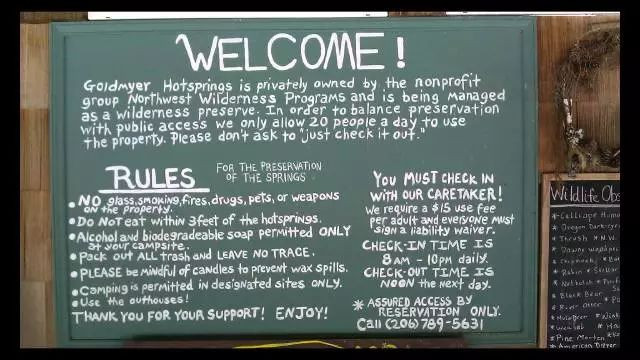 WELCOME!
Goldmyer Hotsprings is privately owned by the nonprofit
group Northwest Wilderness Programs and is being managed
as a wilderness preserve. In order to balance preservation
with public access we only allow 20 people a day to use
the property. Please don't ask to "just check it out."
RULES
FOR THE PRESERVATION
OF THE SPRINGS
• NO glass, smoking, fires, drugs, pets, or weapons
on the property.
• Do NOT eat within 3 feet of the hotsprings.
• Alcohol and biodegradeable soap permitted ONLY
at your campsite.
• Pack out ALL trash and LEAVE NO TRACE.
• PLEASE be mindful of candles to prevent wax spills.
• Camping is permitted in designated sites ONLY.
• Use the outhouses!
THANK YOU FOR YOUR SUPPORT! ENJOY!
YOU MUST CHECK IN
WITH OUR CARETAKER!
We require a $15 use fee
per adult and everyone must
sign a liability waiver.
CHECK-IN TIME IS
8AM - 10PM daily.
CHECK-OUT TIME IS
NOON the next day.
* ASSURED ACCESS BY
RESERVATION ONLY.
Call (206) 789-5631
Wildlife
* Calliope
* Oregon
* Thrush
* Robin
* Black Bear
* River Otter
* Pine Marten
* American